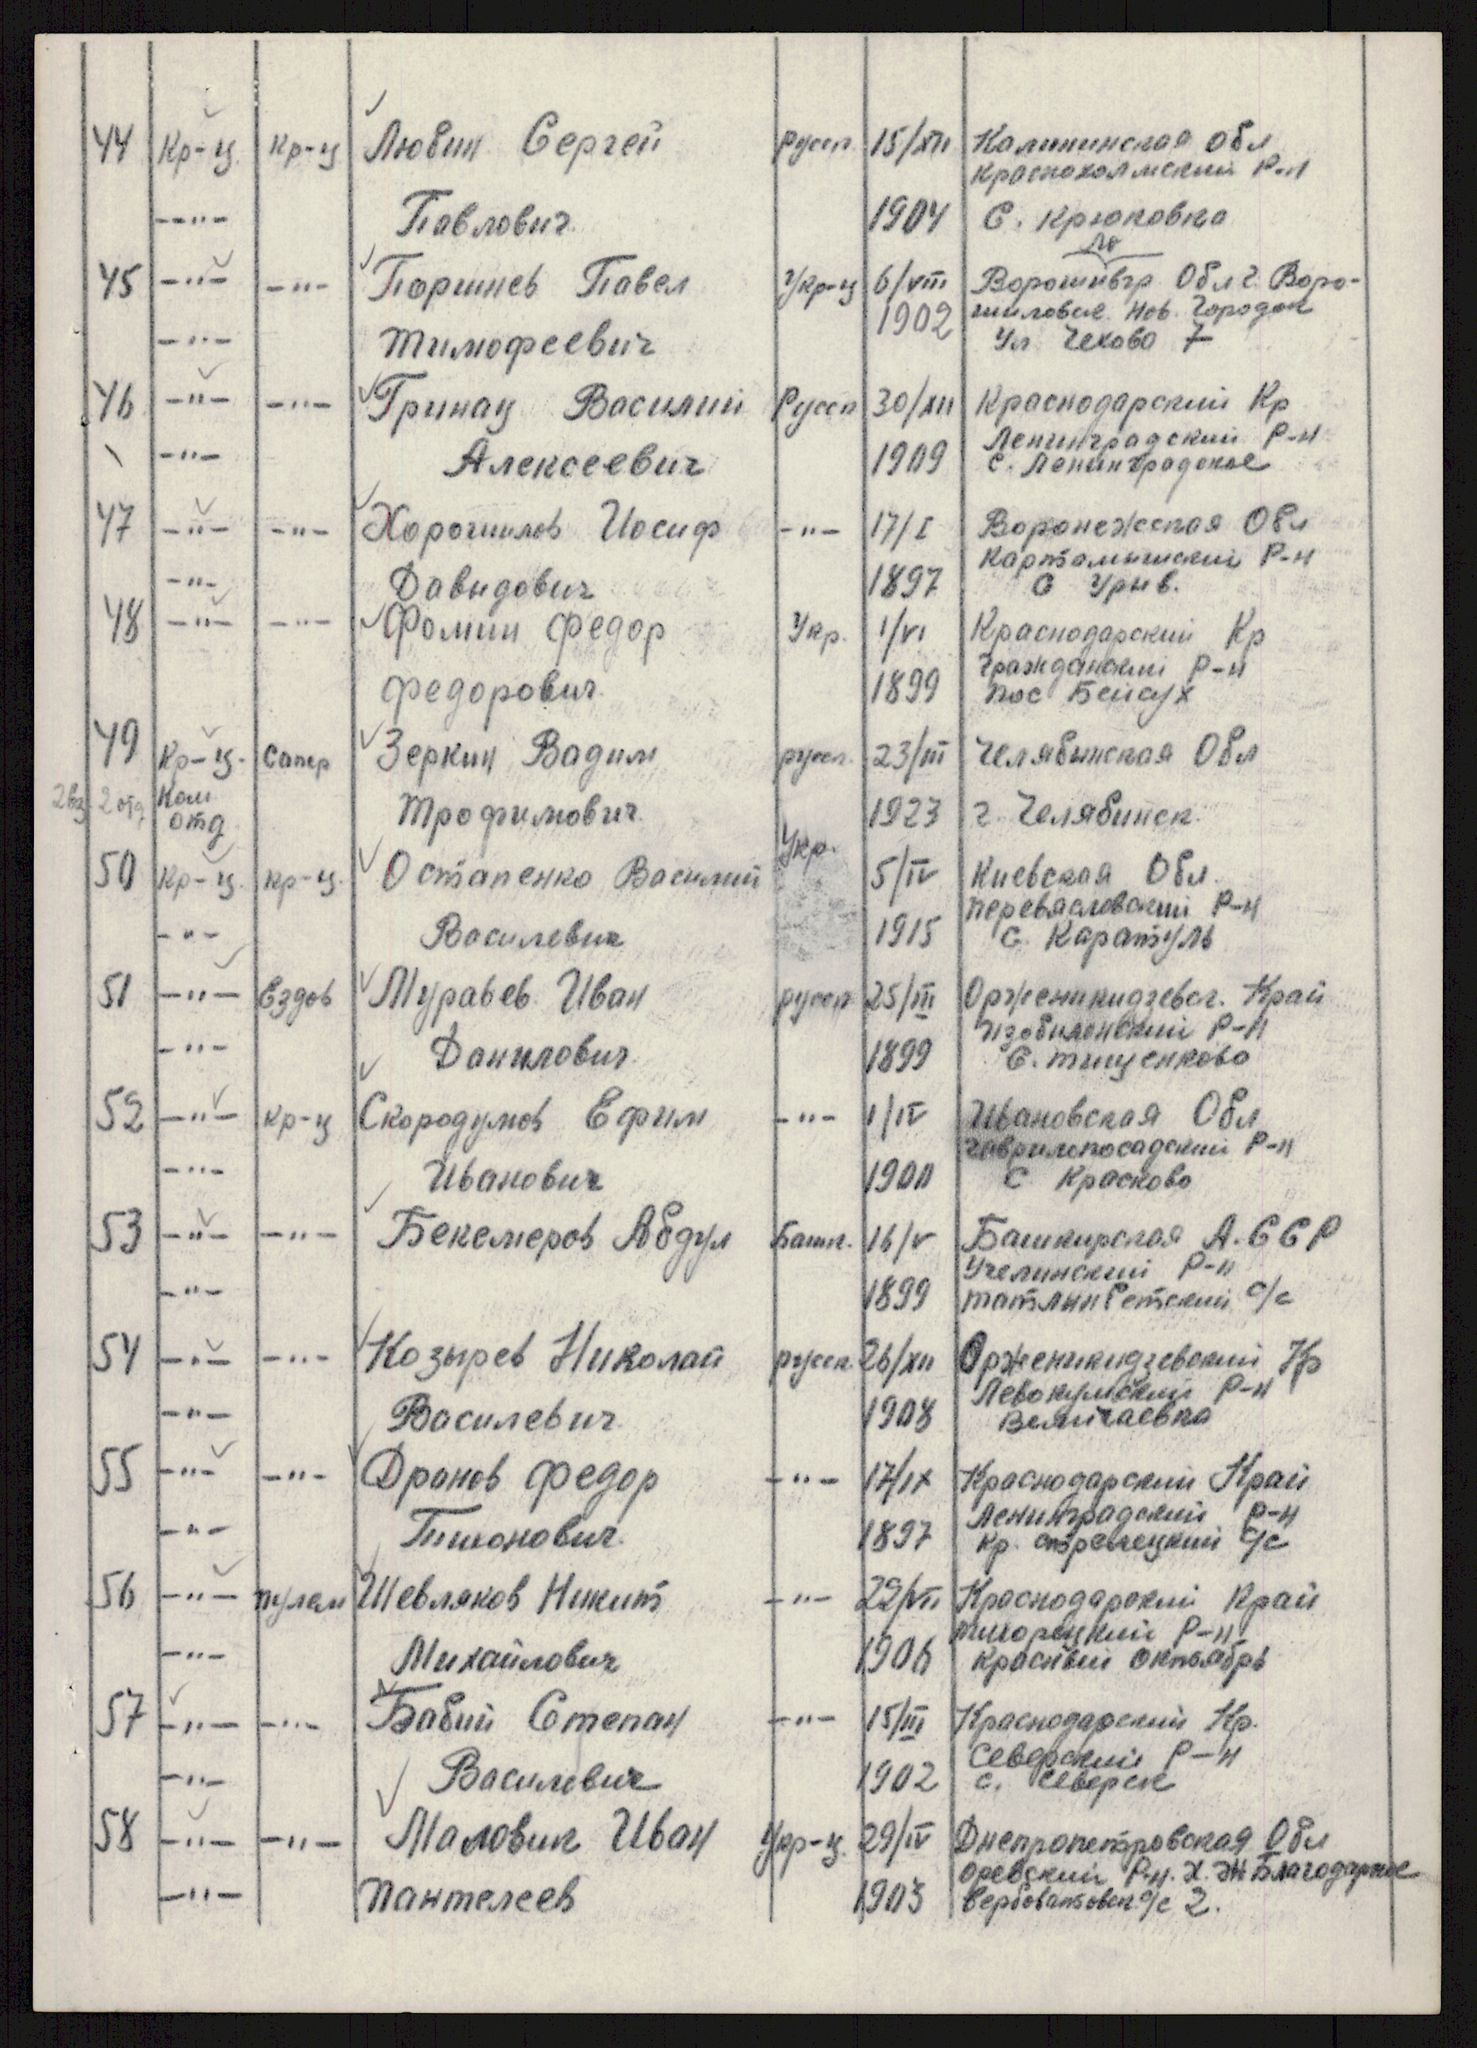 44 Кр-ц. Кр-ц Любин Сергей русск. 15/XII Калининская обл
Краснохолмский Р-н
-"- Павлович 1904 С. Крюковка
ло
45 -"- -"- Паршнев Павел Укр-ц 6/VIII Ворошивгр Обл г. Воро-
1902 шиловск. Нов. Городок
-"- Тимофеевич Ул Чехова 7
46 -"- -"- Гринац Василий Русск 30/XII Краснодарский Кр
Ленинградский Р-н
-"- Алексеевич 1909 с. Ленинградское
47 -"- -"- Хорошилов Иосиф -"- 17/I Воронежская Обл
Картамышский Р-н
-"- Давидович 1897 С Урыв.
48 -"- -"- Фомин Федор Укр. 1/VI Краснодарский Кр
Гражданский Р-н
Федорович 1899 пос Бейсух
49 Кр-ц. Сапер Зеркин Вадим русск. 23/III Челябинская Обл
2вз 2 отд Ком Трофимович 1923 г. Челябинск.
отд
Укр.
50 Кр-ц. кр-ц. Остапенко Василий 5/IV Киевская Обл.
Переяславский Р-н
-"- Василевич 1915 С. Каратуль
51 -"- Ездов Муравьев Иван русск 25/III Орженикидзевск. Край
Изобиленский Р-н
-"- Данилович 1899 С. Тищенково
52 -"- кр-ц Скородумов Ефим -"- 1/IV Ивановская Обл
Гаврилопосадский Р-н
-"- Иванович 1900 С Красково
53 -"- -"- Бекемеров Абдул Башк. 16/V Башкирская А.ССР
Учелинский Р-н
-"- 1899 с/с
54 -"- -"- Козырев Николай русск. 26/XII Орженикидзевский Кр
Левокумский Р-н
-"- Василевич 1908 Величаевка
55 -"- -"- Дранов Федор -"- 17/IX Краснодарский Край
Ленинградский Р-н
-"- Тихонович 1897 кр. стрелецкий с/с
56 -"- пулем Шевляков Никит -"- 29/VII Краснодарский Край
Тихорецкий Р-н
-"- Михайлович 1906 Красный октябрь
57 -"- -"- Бабий Степан -"- 15/III Краснодарский Кр.
Северский Р-н
-"- Василевич 1902 с. Северск
58 -"- -"- Маловик Иван Укр-ц. 29/IV Днепропетровская Обл
Оревский Р-н. Х. Благодарное
-"- Пантелеев 1903 Вербоватовск с/с 2.